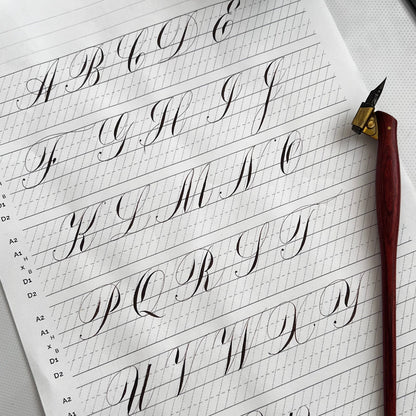 A B C D E
F G H I J
B
D1
D2
K L M N O
A2
A1 H
x B
D1
D2
P Q R S T
A2
A1 H
x B
D1
D2
U V W X Y
A2
A1